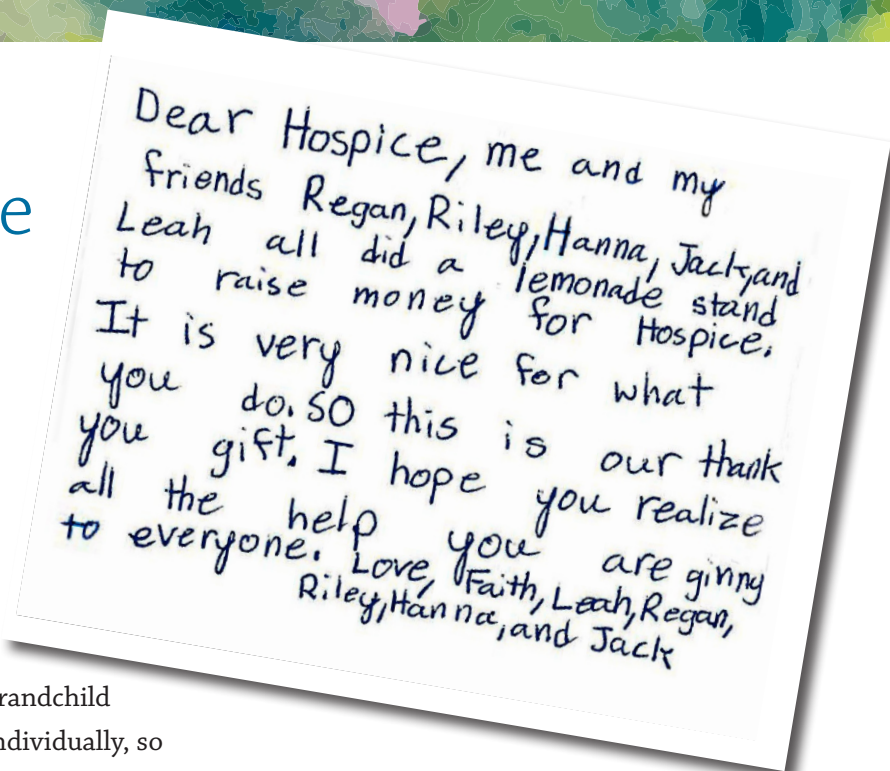 e
Dear Hospice, me and my
friends Regan, Riley, Hanna, Jack, and
Leah all did a lemonade stand
to raise money for Hospice.
It is very nice for what
you do. So this is our thank
you gift. I hope you realize
all the help you are giving
to everyone. Love, Faith, Leah, Regan,
Riley, Hanna, and Jack
randchild
ndividually, so